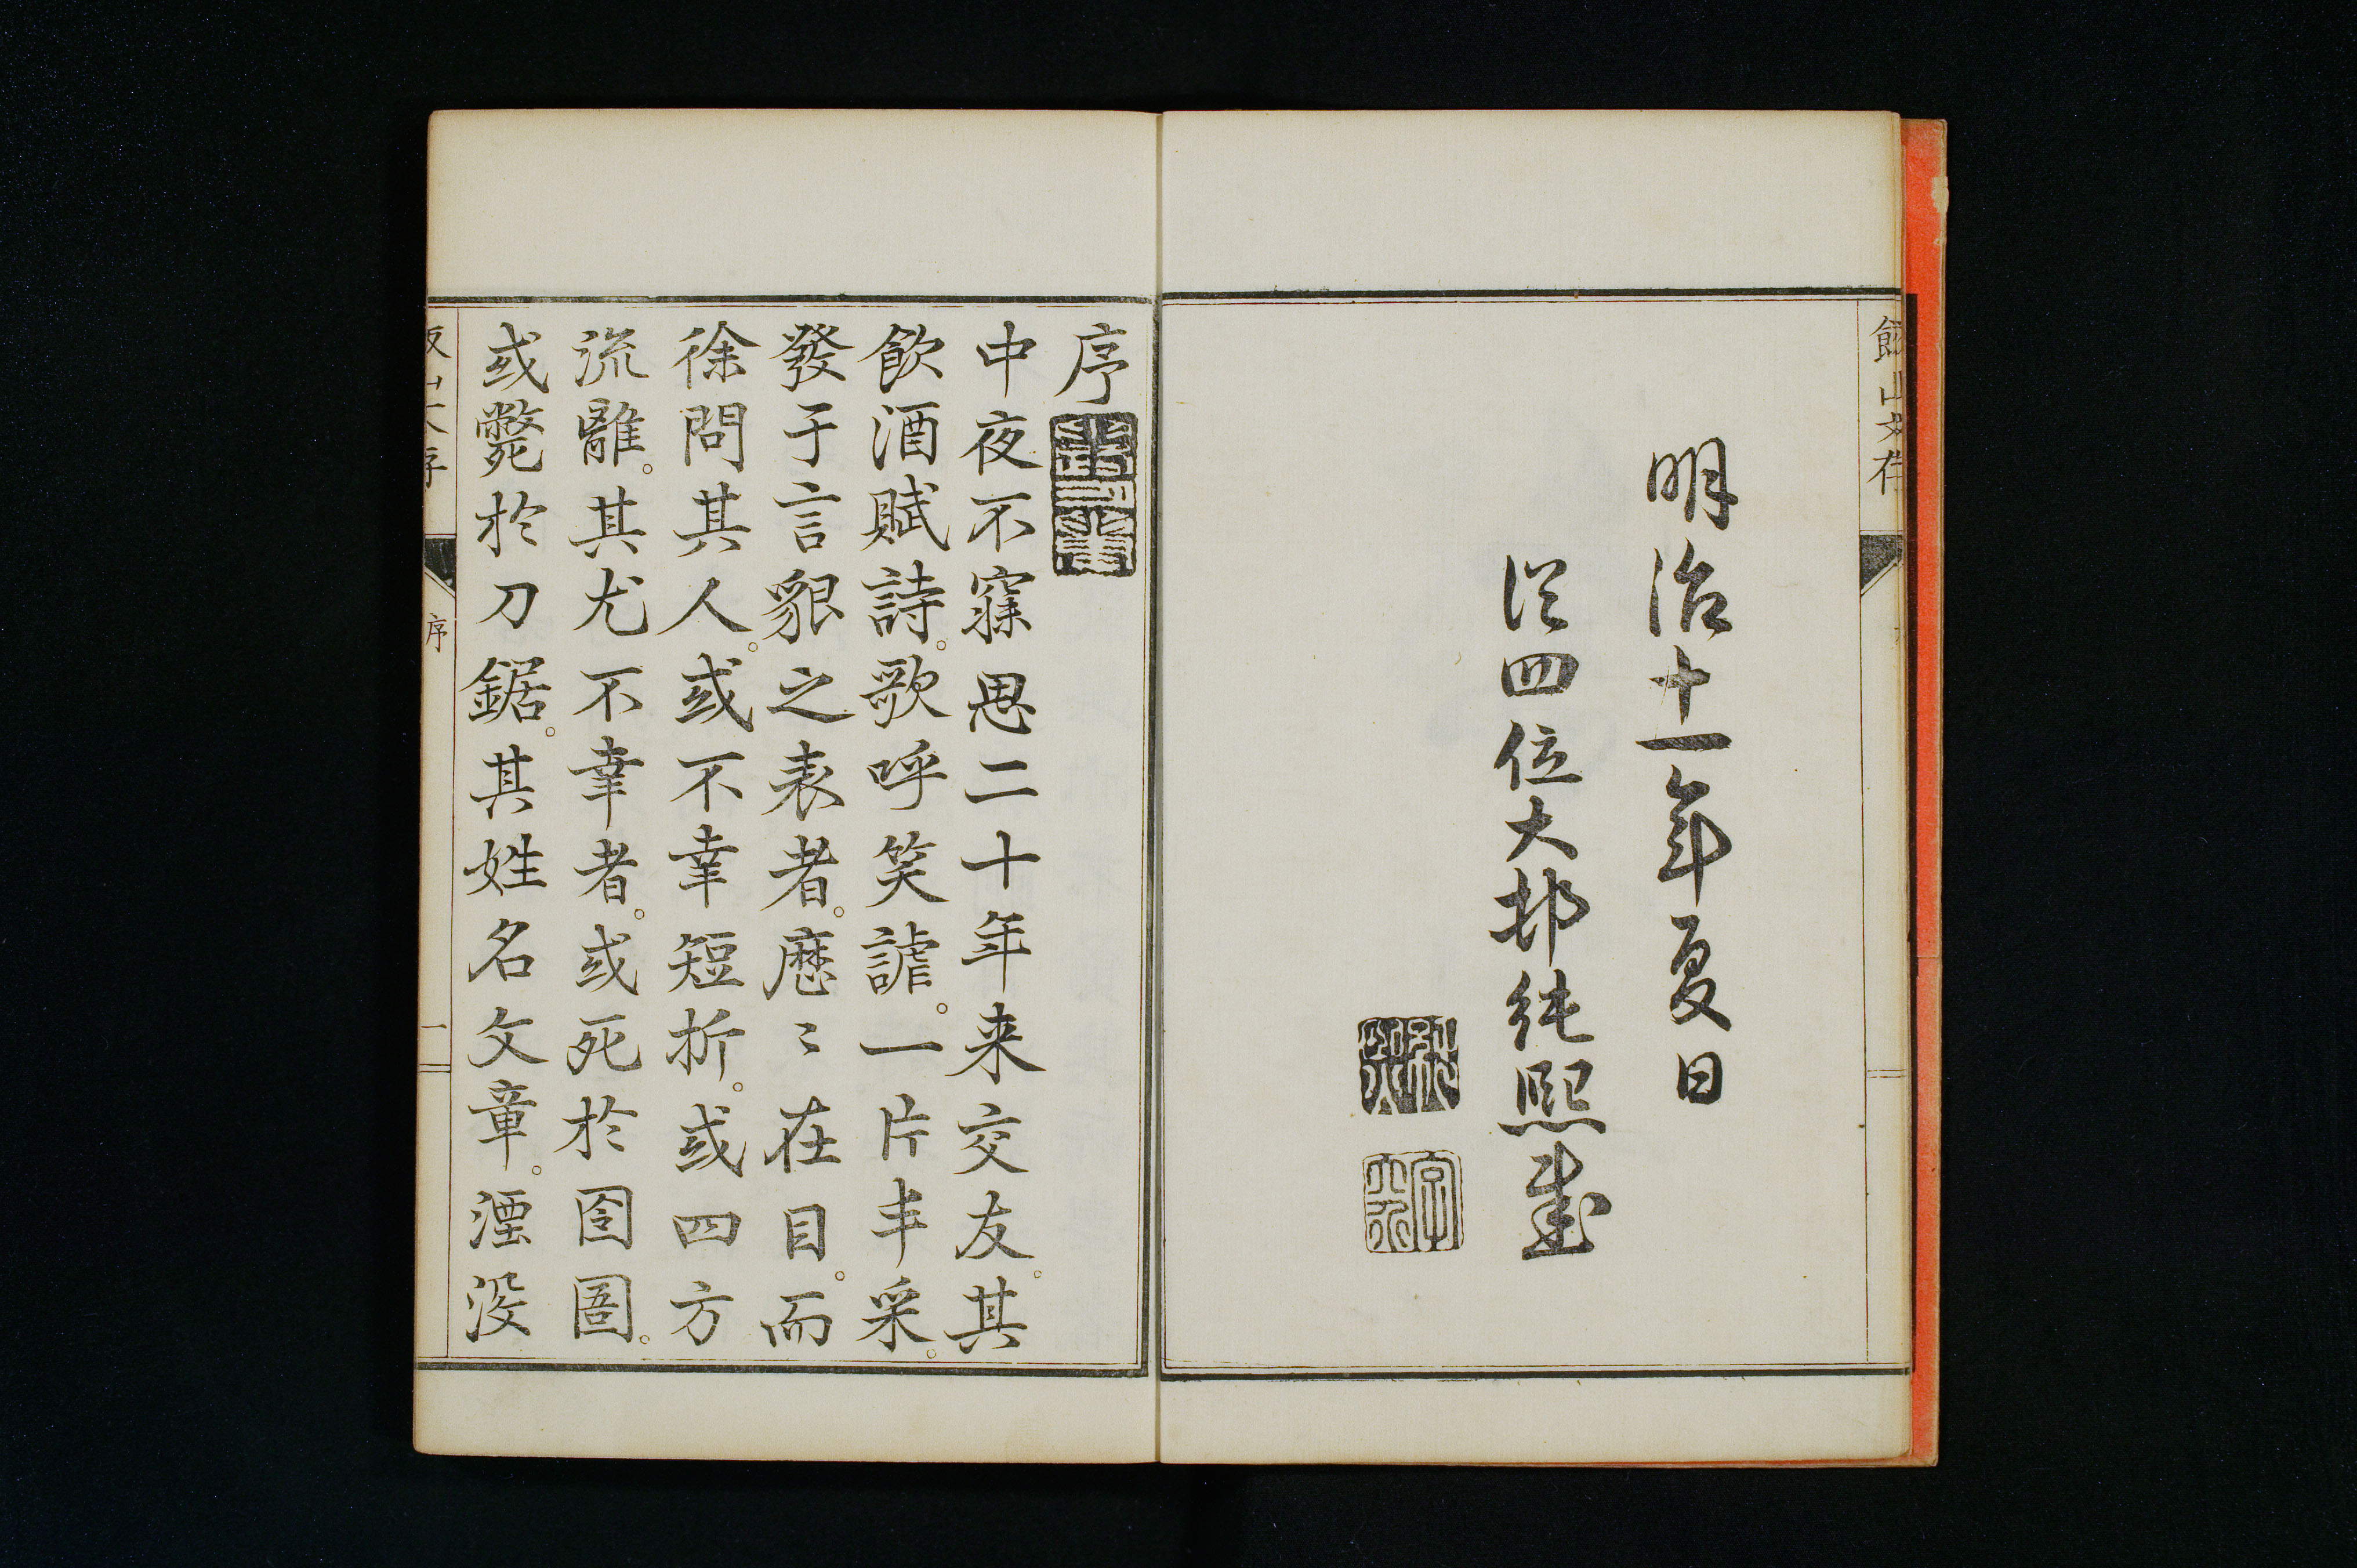 飯山文存
明治十一年夏日
從四位大邨純熈
序
中夜不寐思二十年来交友。其
飲酒賦詩。歌呼笑謔。一片丰采。
發于言貌之表者。歴〻在目。而
徐問其人。或不幸短折。或四方
流離。其尤不幸者。或死於囹圄。
或斃於刀鋸。其姓名文章。湮没
飯山文存
序
一